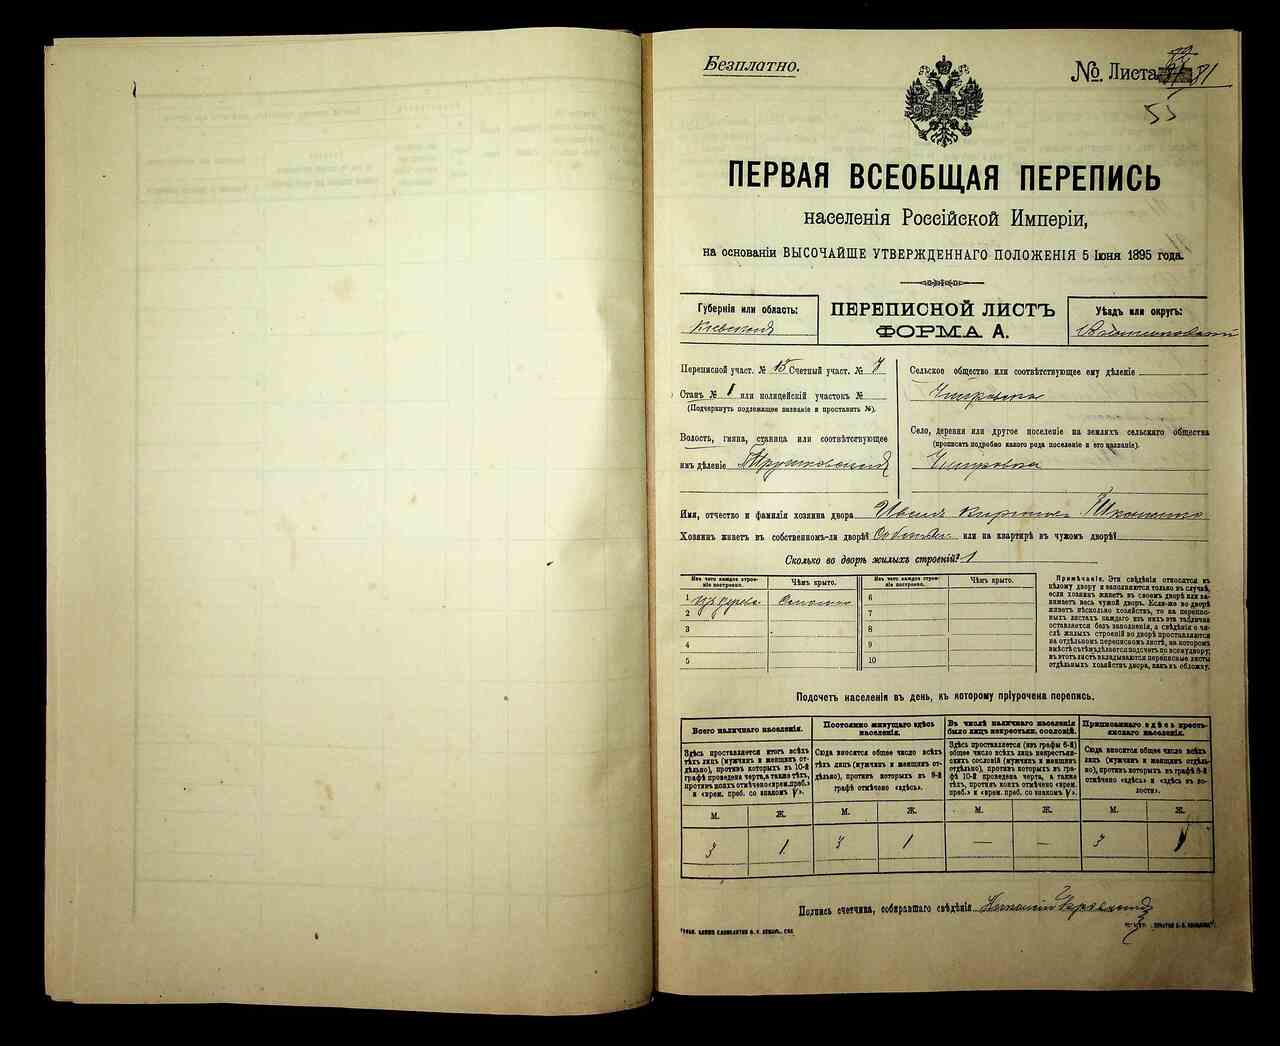 Безплатно.
№ Листа 81
55
ПЕРВАЯ ВСЕОБЩАЯ ПЕРЕПИСЬ
населенія Россійской Имперіи,
на основаніи ВЫСОЧАЙШЕ УТВЕРЖДЕННАГО ПОЛОЖЕНІЯ 5 Іюня 1895 года.
Губернія или область:
Кіевская
ПЕРЕПИСНОЙ ЛИСТЪ
ФОРМА А.
Уѣздъ или округъ:
Переписной участ. № 15 Счетный участ. № 7
Станъ № 1 или полицейскій участокъ №
(Подчеркнуть подлежащее названіе и проставить №).
Волость, гмина, станица или соотвѣтствующее
имъ дѣленіе Трушковская
Сельское общество или соотвѣтствующее ему дѣленіе
Село, деревня или другое поселеніе на земляхъ сельскаго общества
(прописать подробно какого рода поселеніе и его названіе).
Имя, отчество и фамилія хозяина двора
Хозяинъ живетъ въ собственномъ-ли дворѣ? или на квартирѣ въ чужомъ дворѣ?
Сколько во дворѣ жилыхъ строеній? 1
Изъ чего каждое строеніе построено.
Чѣмъ крыто.
Изъ чего каждое строеніе построено.
Чѣмъ крыто.
1 изъ дерева Соломою
2
3
4
5
6
7
8
9
10
Примѣчаніе. Эти свѣдѣнія относятся къ
цѣлому двору и заполняются только въ случаѣ,
если хозяинъ живетъ въ своемъ дворѣ или за-
нимаетъ весь чужой дворъ. Если-же во дворѣ
живетъ нѣсколько хозяйствъ, то на перепис-
ныхъ листахъ каждаго изъ нихъ эта табличка
оставляется безъ заполненія, а свѣдѣнія о чи-
слѣ жилыхъ строеній во дворѣ проставляются
на отдѣльномъ переписномъ листѣ, на которомъ
вмѣстѣ съ тѣмъ дѣлается подсчетъ по всему двору;
въ этотъ листъ вкладываются переписные листы
отдѣльныхъ хозяйствъ двора, какъ въ обложку.
Подсчетъ населенія въ день, къ которому пріурочена перепись.
Всего наличнаго населенія.
Здѣсь проставляется итогъ всѣхъ
тѣхъ лицъ (мужчинъ и женщинъ от-
дѣльно), противъ которыхъ въ 10-й
графѣ проведена черта, а также тѣхъ,
противъ коихъ отмѣчено «врем. преб.»
и «врем. преб. со знакомъ V».
Постоянно живущаго здѣсь
населенія.
Сюда вносится общее число всѣхъ
тѣхъ лицъ (мужчинъ и женщинъ от-
дѣльно), противъ которыхъ въ 9-й
графѣ отмѣчено «здѣсь».
Въ числѣ наличнаго населенія
было лицъ некрестьян. сословій.
Здѣсь проставляется (изъ графы 6-й)
общее число всѣхъ лицъ некрестьян-
скихъ сословій (мужчинъ и женщинъ
отдѣльно), противъ которыхъ въ гра-
фѣ 10-й проведена черта, а также
тѣхъ, противъ коихъ отмѣчено «врем.
преб.» и «врем. преб. со знакомъ V».
Приписаннаго здѣсь кресть-
янскаго населенія.
Сюда вносится общее число всѣхъ
лицъ (мужчинъ и женщинъ отдѣль-
но), противъ которыхъ въ графѣ 8-й
отмѣчено «здѣсь» и «здѣсь въ во-
лости».
М. Ж. М. Ж. М. Ж. М. Ж.
3 1 3 1 — — 3 1
Подпись счетчика, собиравшаго свѣдѣнія